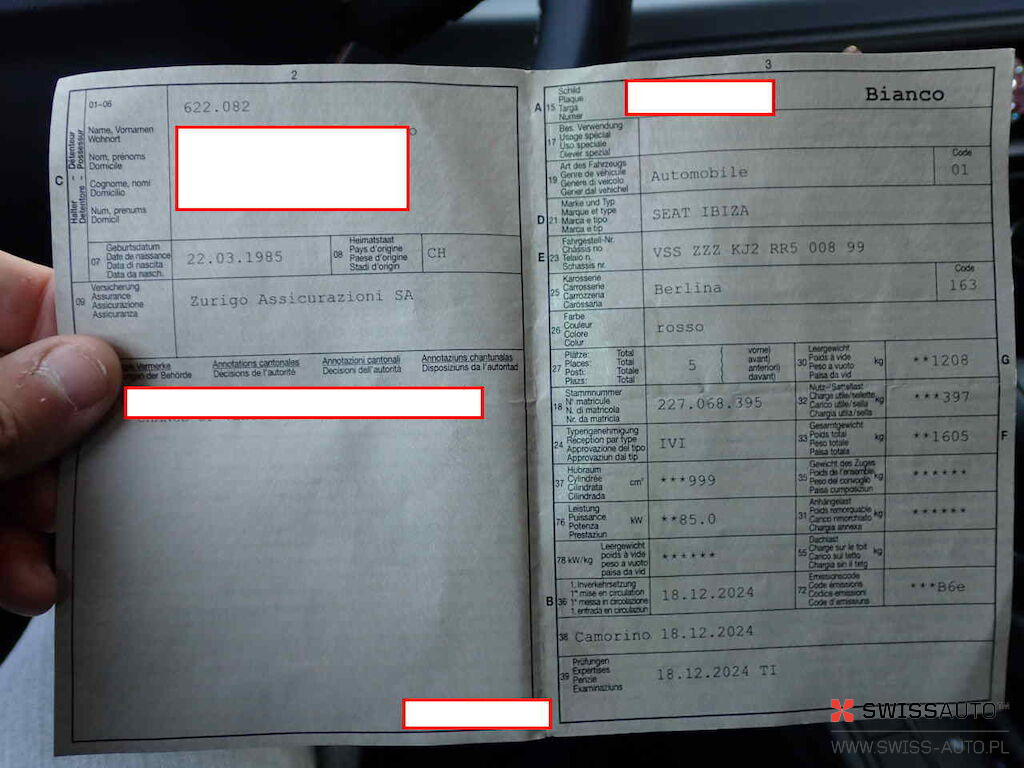 2
01-06
622.082
Halter - Détenteur
Detentore - Possessur
Name, Vornamen
Wohnort
Nom, prénoms
Domicile
Cognome, nomi
Domicilio
Num, prenums
Domicil
C
07
Geburtsdatum
Date de naissance
Data di nascita
Data da nasch.
22.03.1985
08
Heimatstaat
Pays d'origine
Paese d'origine
Stadi d'origin
CH
09
Versicherung
Assurance
Assicurazione
Assicuranza
Zurigo Assicurazioni SA
Vermerke
der Behörde
Annotations cantonales
Décisions de l'autorité
Annotazioni cantonali
Decisioni dell'autorità
Annotaziuns chantunalas
Disposiziuns da l'autoritad
3
A 15
Schild
Plaque
Targa
Numer
Bianco
17
Bes. Verwendung
Usage spécial
Uso speciale
Diever spezial
19
Art des Fahrzeugs
Genre de véhicule
Genere di veicolo
Gener dal vehichel
Automobile
Code
01
D 21
Marke und Typ
Marque et type
Marca e tipo
Marca e tip
SEAT IBIZA
E 23
Fahrgestell-Nr.
Châssis no
Telaio n.
Schassis nr.
VSS ZZZ KJ2 RR5 008 99
25
Karosserie
Carrosserie
Carrozzeria
Carossaria
Berlina
Code
163
26
Farbe
Couleur
Colore
Colur
rosso
27
Plätze: Total
Places: Total
Posti: Totale
Plazs: Total
5
vorne)
avant)
anteriori)
davant)
30
Leergewicht
Poids à vide
Peso a vuoto
Paisa da vid
kg
**1208
G
18
Stammnummer
N° matricule
N. di matricola
Nr. da matricla
227.068.395
32
Nutz-/Sattellast
Charge utile/sellette
Carico utile/sella
Chargia utila/sella
kg
***397
24
Typengenehmigung
Réception par type
Approvazione del tipo
Approvaziun dal tip
IVI
33
Gesamtgewicht
Poids total
Peso totale
Paisa totala
kg
**1605
F
37
Hubraum
Cylindrée
Cilindrata
Cilindrada
cm³
***999
35
Gewicht des Zuges
Poids de l'ensemble
Peso del convoglio
Paisa cumposiziun
kg
******
76
Leistung
Puissance
Potenza
Prestaziun
kW
**85.0
31
Anhängelast
Poids remorquable
Carico rimorchiato
Chargia annexa
kg
******
78 kW/kg
Leergewicht
poids à vide
peso a vuoto
paisa da vid
******
55
Dachlast
Charge sur le toit
Carico sul tetto
Chargia sin il tetg
kg
******
B 36
1. Inverkehrsetzung
1re mise en circulation
1a messa in circolazione
1. entrada en circulaziun
18.12.2024
72
Emissionscode
Code émissions
Codice emissioni
Code d'emissiuns
***B6e
38
Camorino 18.12.2024
39
Prüfungen
Expertises
Perizie
Examinaziuns
18.12.2024 TI
SWISSAUTO™
WWW.SWISS-AUTO.PL